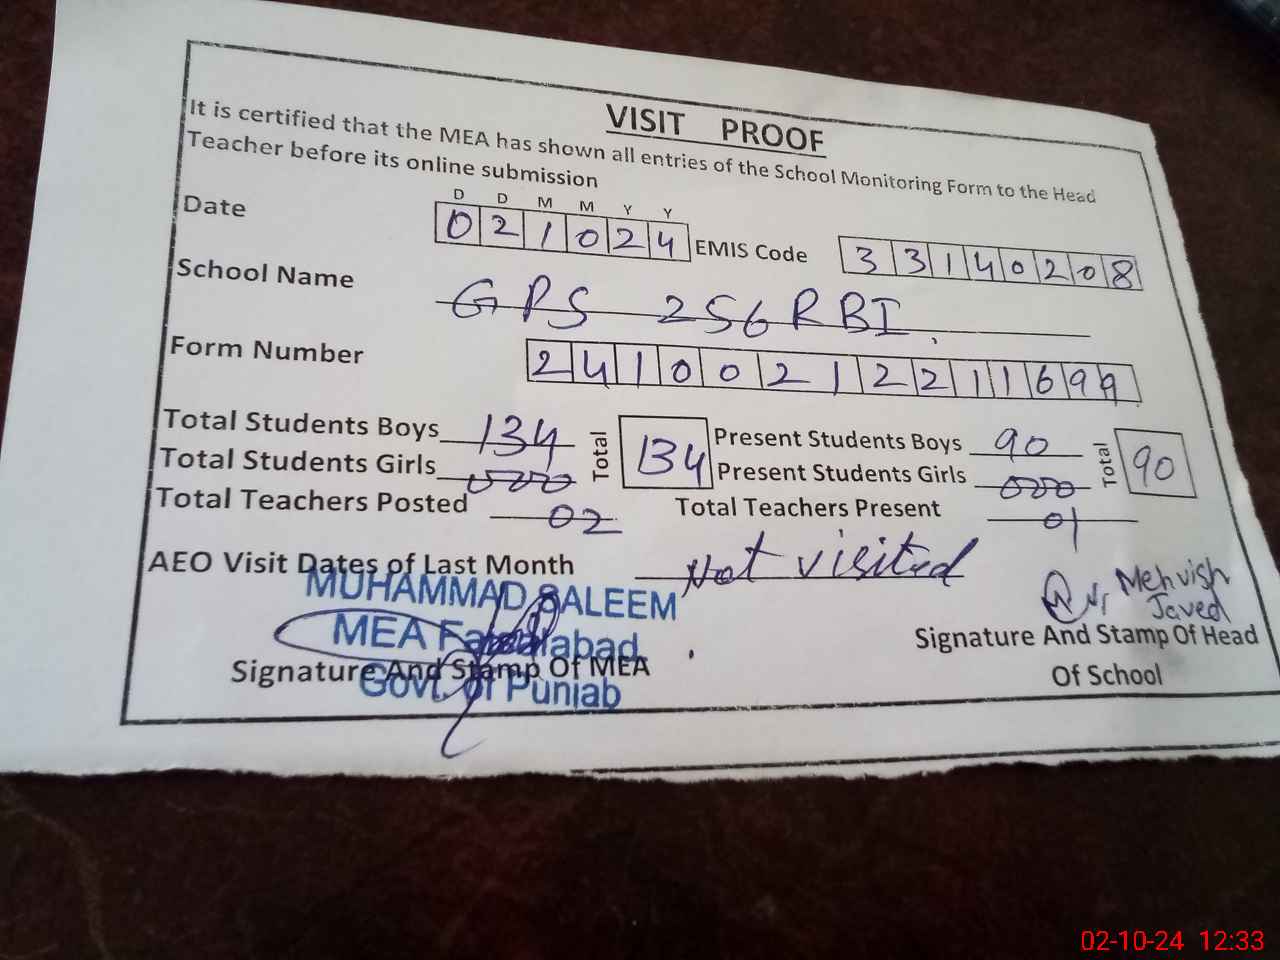 VISIT PROOF
It is certified that the MEA has shown all entries of the School Monitoring Form to the Head
Teacher before its online submission
D D M M Y Y
Date 0 2 1 0 2 4 EMIS Code 3 3 1 4 0 2 0 8
School Name GPS 256 RBI.
Form Number 2 4 1 0 0 2 1 2 2 1 1 6 9 9
Total Students Boys 134 Total 134 Present Students Boys 90 Total 90
Total Students Girls 000 Present Students Girls 000
Total Teachers Posted 02 Total Teachers Present 01
AEO Visit Dates of Last Month Not visited
MUHAMMAD SALEEM
MEA Faisalabad
Govt. of Punjab
Signature And Stamp Of MEA
Mehvish
Javed
Signature And Stamp Of Head
Of School
02-10-24 12:33